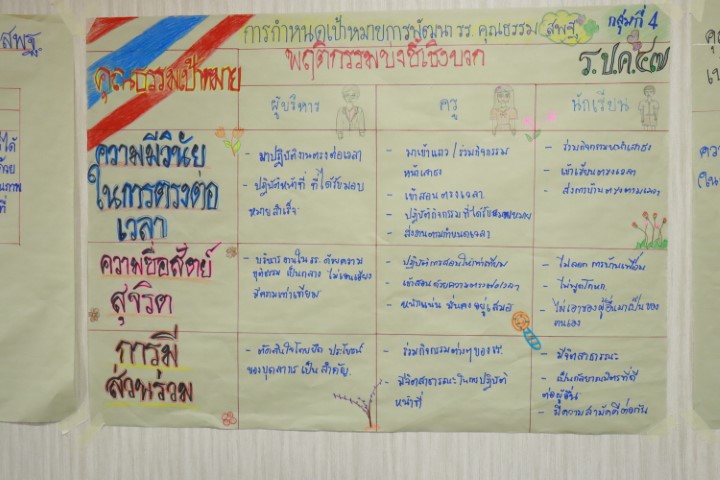 สพฐ.
การกำหนดเป้าหมายการพัฒนา รร. คุณธรรม สพฐ
กลุ่มที่ 4
พฤติกรรมบ่งชี้เชิงบวก
ร.ป.ค.๔๗
คุณธรรมเป้าหมาย
ผู้บริหาร
ครู
นักเรียน
ความมีวินัย
ในการตรงต่อ
เวลา
- มาปฏิบัติงานตรงต่อเวลา
- ปฏิบัติหน้าที่ ที่ได้รับมอบ
หมายสำเร็จ
- มาเข้าแถว / ร่วมกิจกรรม
หน้าเสาธง
- เข้าสอนตรงเวลา
- ปฏิบัติกิจกรรมที่ได้รับมอบหมาย
- ส่งงานตามกำหนดเวลา
- ร่วมกิจกรรมหน้าเสาธง
- เข้าเรียนตรงเวลา
- ส่งการบ้านตรงตามเวลา
ความซื่อสัตย์
สุจริต
- บริหารงานใน รร. ด้วยความ
ยุติธรรม เป็นกลาง ไม่เอนเอียง
มีความเท่าเทียม
- ปฏิบัติการสอนให้เท่าเทียม
- เข้าสอนด้วยความตรงต่อเวลา
- อยู่เสมอ
- ไม่ลอกการบ้านเพื่อน
- ไม่พูดโกหก
- ไม่เอาของผู้อื่นมาเป็นของ
ตนเอง
การมี
ส่วนร่วม
- ตัดสินใจโดยยึด ประโยชน์
ของบุคลากร เป็นสำคัญ
- ร่วมกิจกรรมต่างๆ ของ รร.
- มีจิตสาธารณะในการปฏิบัติ
หน้าที่
- มีจิตสาธารณะ
- เป็นกัลยาณมิตรที่ดี
ต่อผู้อื่น
- มีความสามัคคีต่อกัน